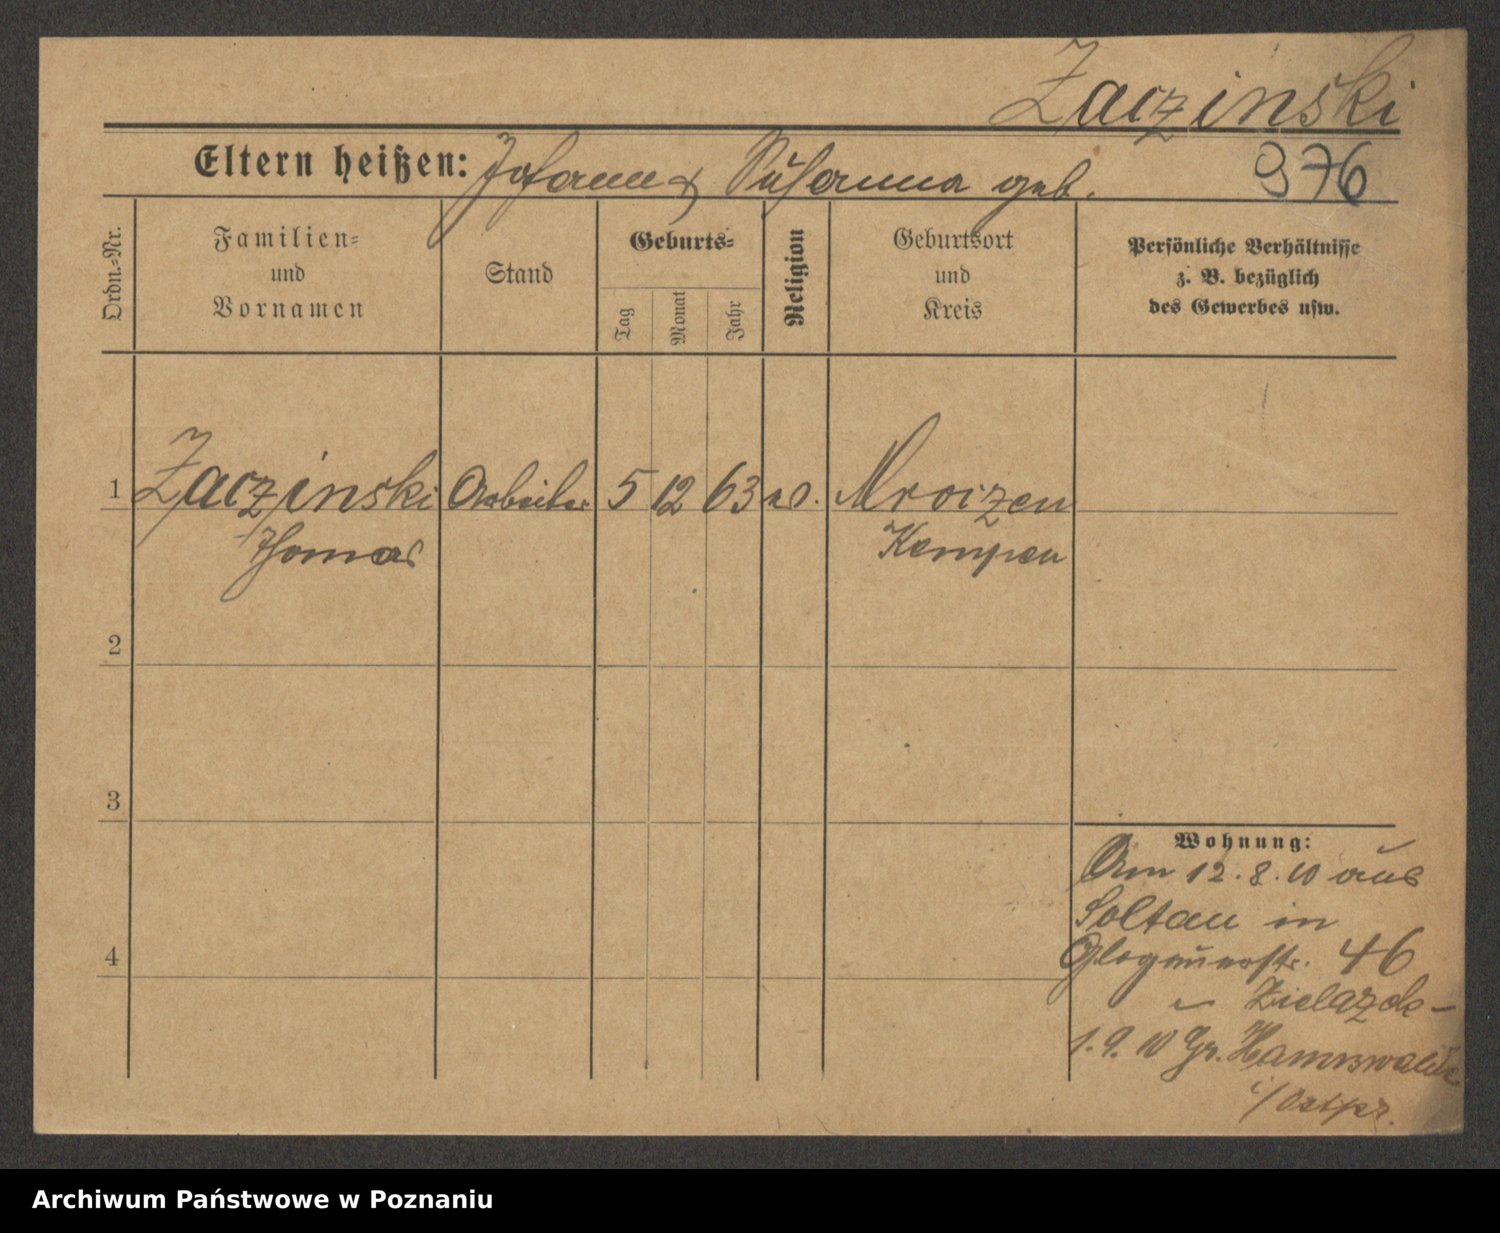 Zaczinski
Eltern heißen: Johann & Susanna geb.
376
Ordn.=Nr.
Familien=
und
Vornamen
Stand
Geburts=
Tag
Monat
Jahr
Religion
Geburtsort
und
Kreis
Persönliche Verhältnisse
z. B. bezüglich
des Gewerbes usw.
1 Zaczinski Arbeiter 5 12 63 Mroczen
Thomas Kempen
2
3
4
Wohnung:
Am 12.8.10 aus
Soltau in
Glogauerstr. 46
1.9.10 Gr.
i/Ostpr.
Archiwum Państwowe w Poznaniu